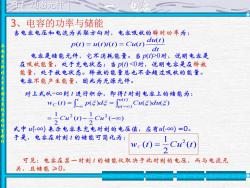 3、电容的功率与储能
当电容电压和电流为关联方向时,电容吸收的瞬时功率为:
p(t) = u(t)i(t) = Cu(t) du(t)/dt
电容是储能元件,它不消耗能量。当 p(t)>0时,说明电容是
在吸收能量,处于充电状态;当 p(t) <0时,说明电容是在释放
能量,处于放电状态。释放的能量总也不会超过吸收的能量。
电容不能产生能量,因此为无源元件。
对上式从-∞到 t 进行积分,即得t 时刻电容上的储能为:
w_C(t) = ∫_{-∞}^{t} p(ξ)dξ = ∫_{u(-∞)}^{u(t)} Cu(ξ)du(ξ)
= 1/2 Cu²(t) − 1/2 Cu²(−∞)
式中 u(-∞) 表示电容未充电时刻的电压值,应有u(-∞) =0。
于是,电容在时刻 t 的储能可简化为:
w_C(t) = 1/2 Cu²(t)
可见:电容在某一时刻 t 的储能仅取决于此时刻的电压,而与电流无
关,且储能 ≥0。